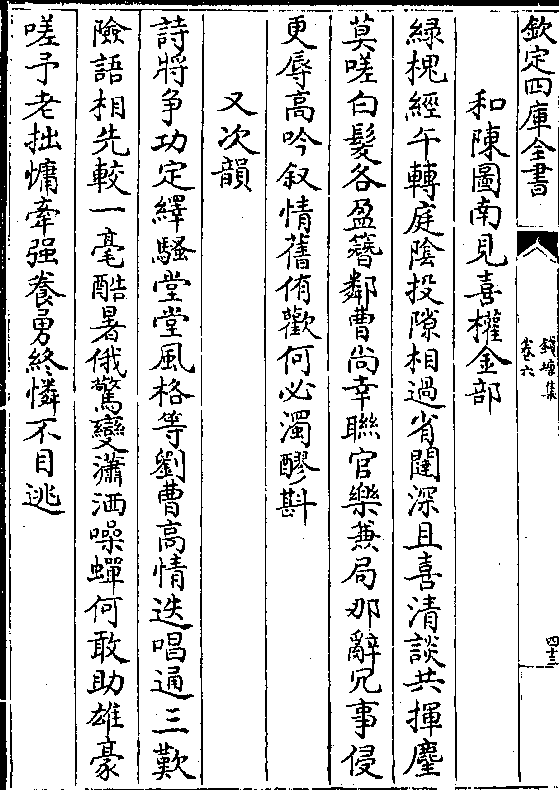 欽定四庫全書
錢塘集
卷六
四十三
和陳圖南見喜權金部
緑槐經午轉庭陰投隙相過省闥深且喜清談共揮麈
莫嗟白髮各盈簪鄰曹尚幸聯官樂兼局那辭冗事侵
更辱高吟叙情舊侑歡何必濁醪斟
又次韻
詩將争功定繹騷堂堂風格等劉曹高情迭唱通三歎
險語相先較一毫酷暑俄驚變瀟洒噪蟬何敢助雄豪
嗟予老拙慵牽强養勇終憐不目逃